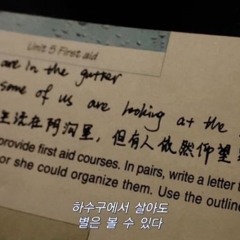 Unit 5 First aid
are in the gutter
some of us are looking at the
生活在阴沟里，但有人依然仰望
provide first aid courses. In pairs, write a letter
or she could organize them. Use the outline
하수구에서 살아도
별은 볼 수 있다